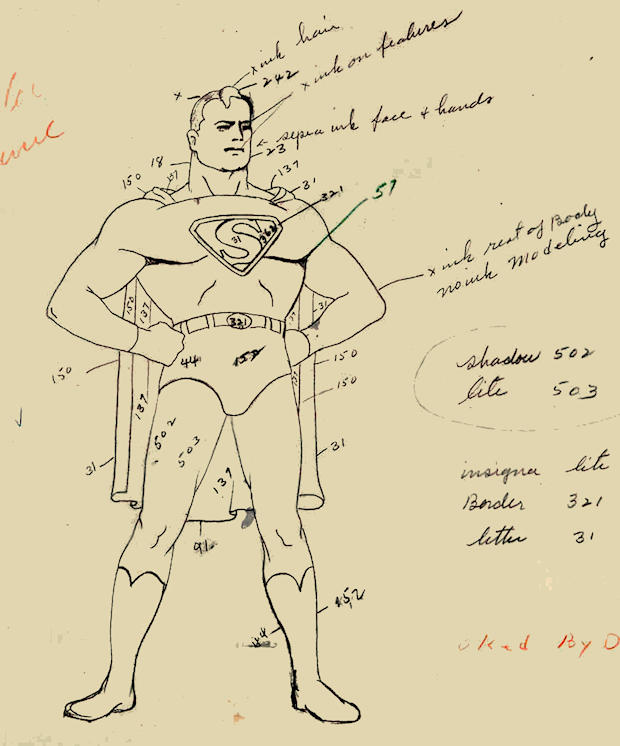 x ink hair
242
x ink on features
x
sepia ink face + hands
23
18
137
150
137
31
321
51
S
31
x ink rest of Body
no ink modeling
150
137
31
321
44
152
150
150
137
150
137
31
31
502
503
137
91
shadow 502
lite 503
insignia lite
Border 321
letter 31
152
44
oked By D